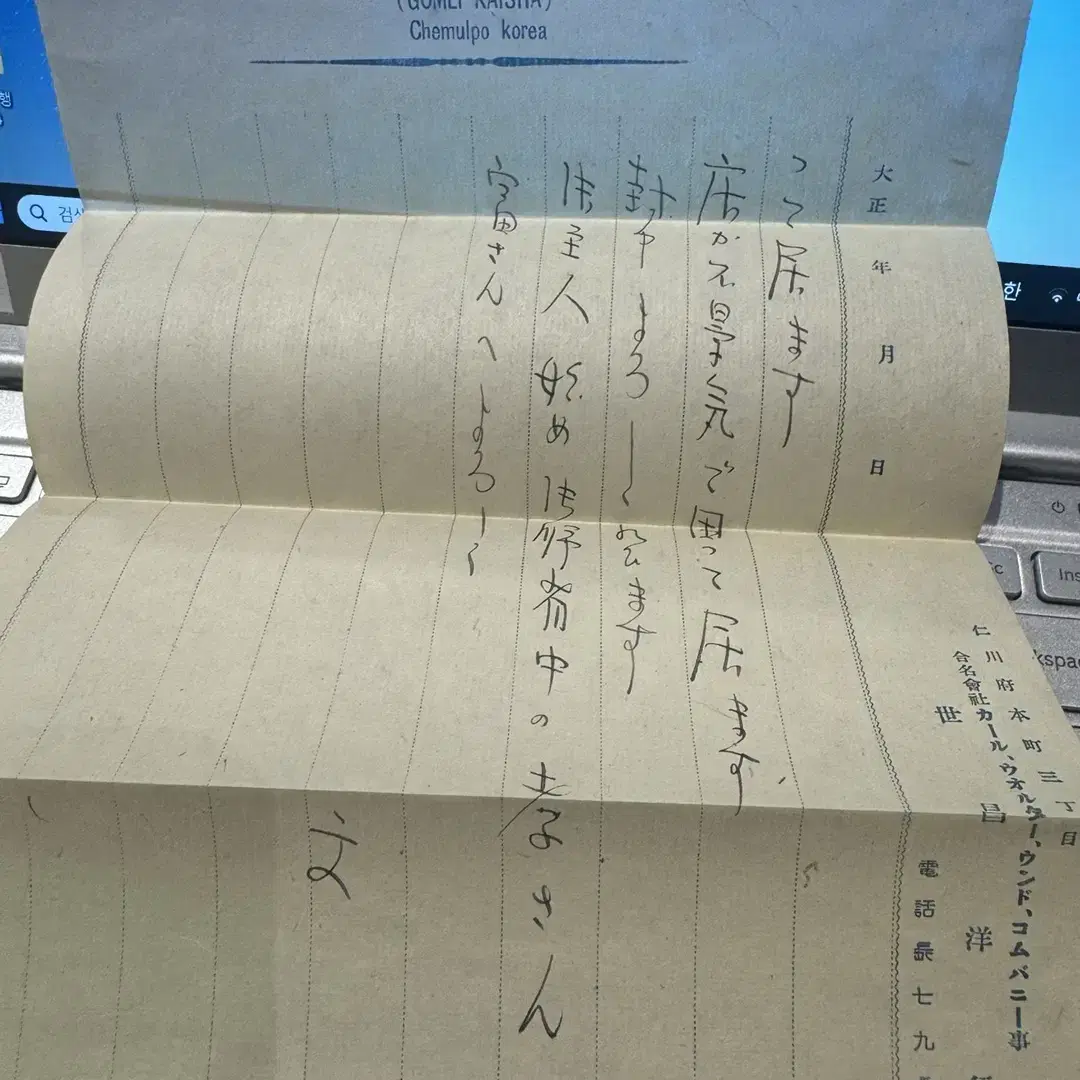 (GOMEI KAISHA)
Chemulpo korea
仁川府本町三丁目
合名會社カール、ウオルター、ウンド、コムパニー事
世昌洋
電話長七九
大正 年 月 日
って居ます
店が不景気で困って居ます
よろしく ます
御主人始め御 中の孝さん
富さんへよろしく
文
검색
한
Ins